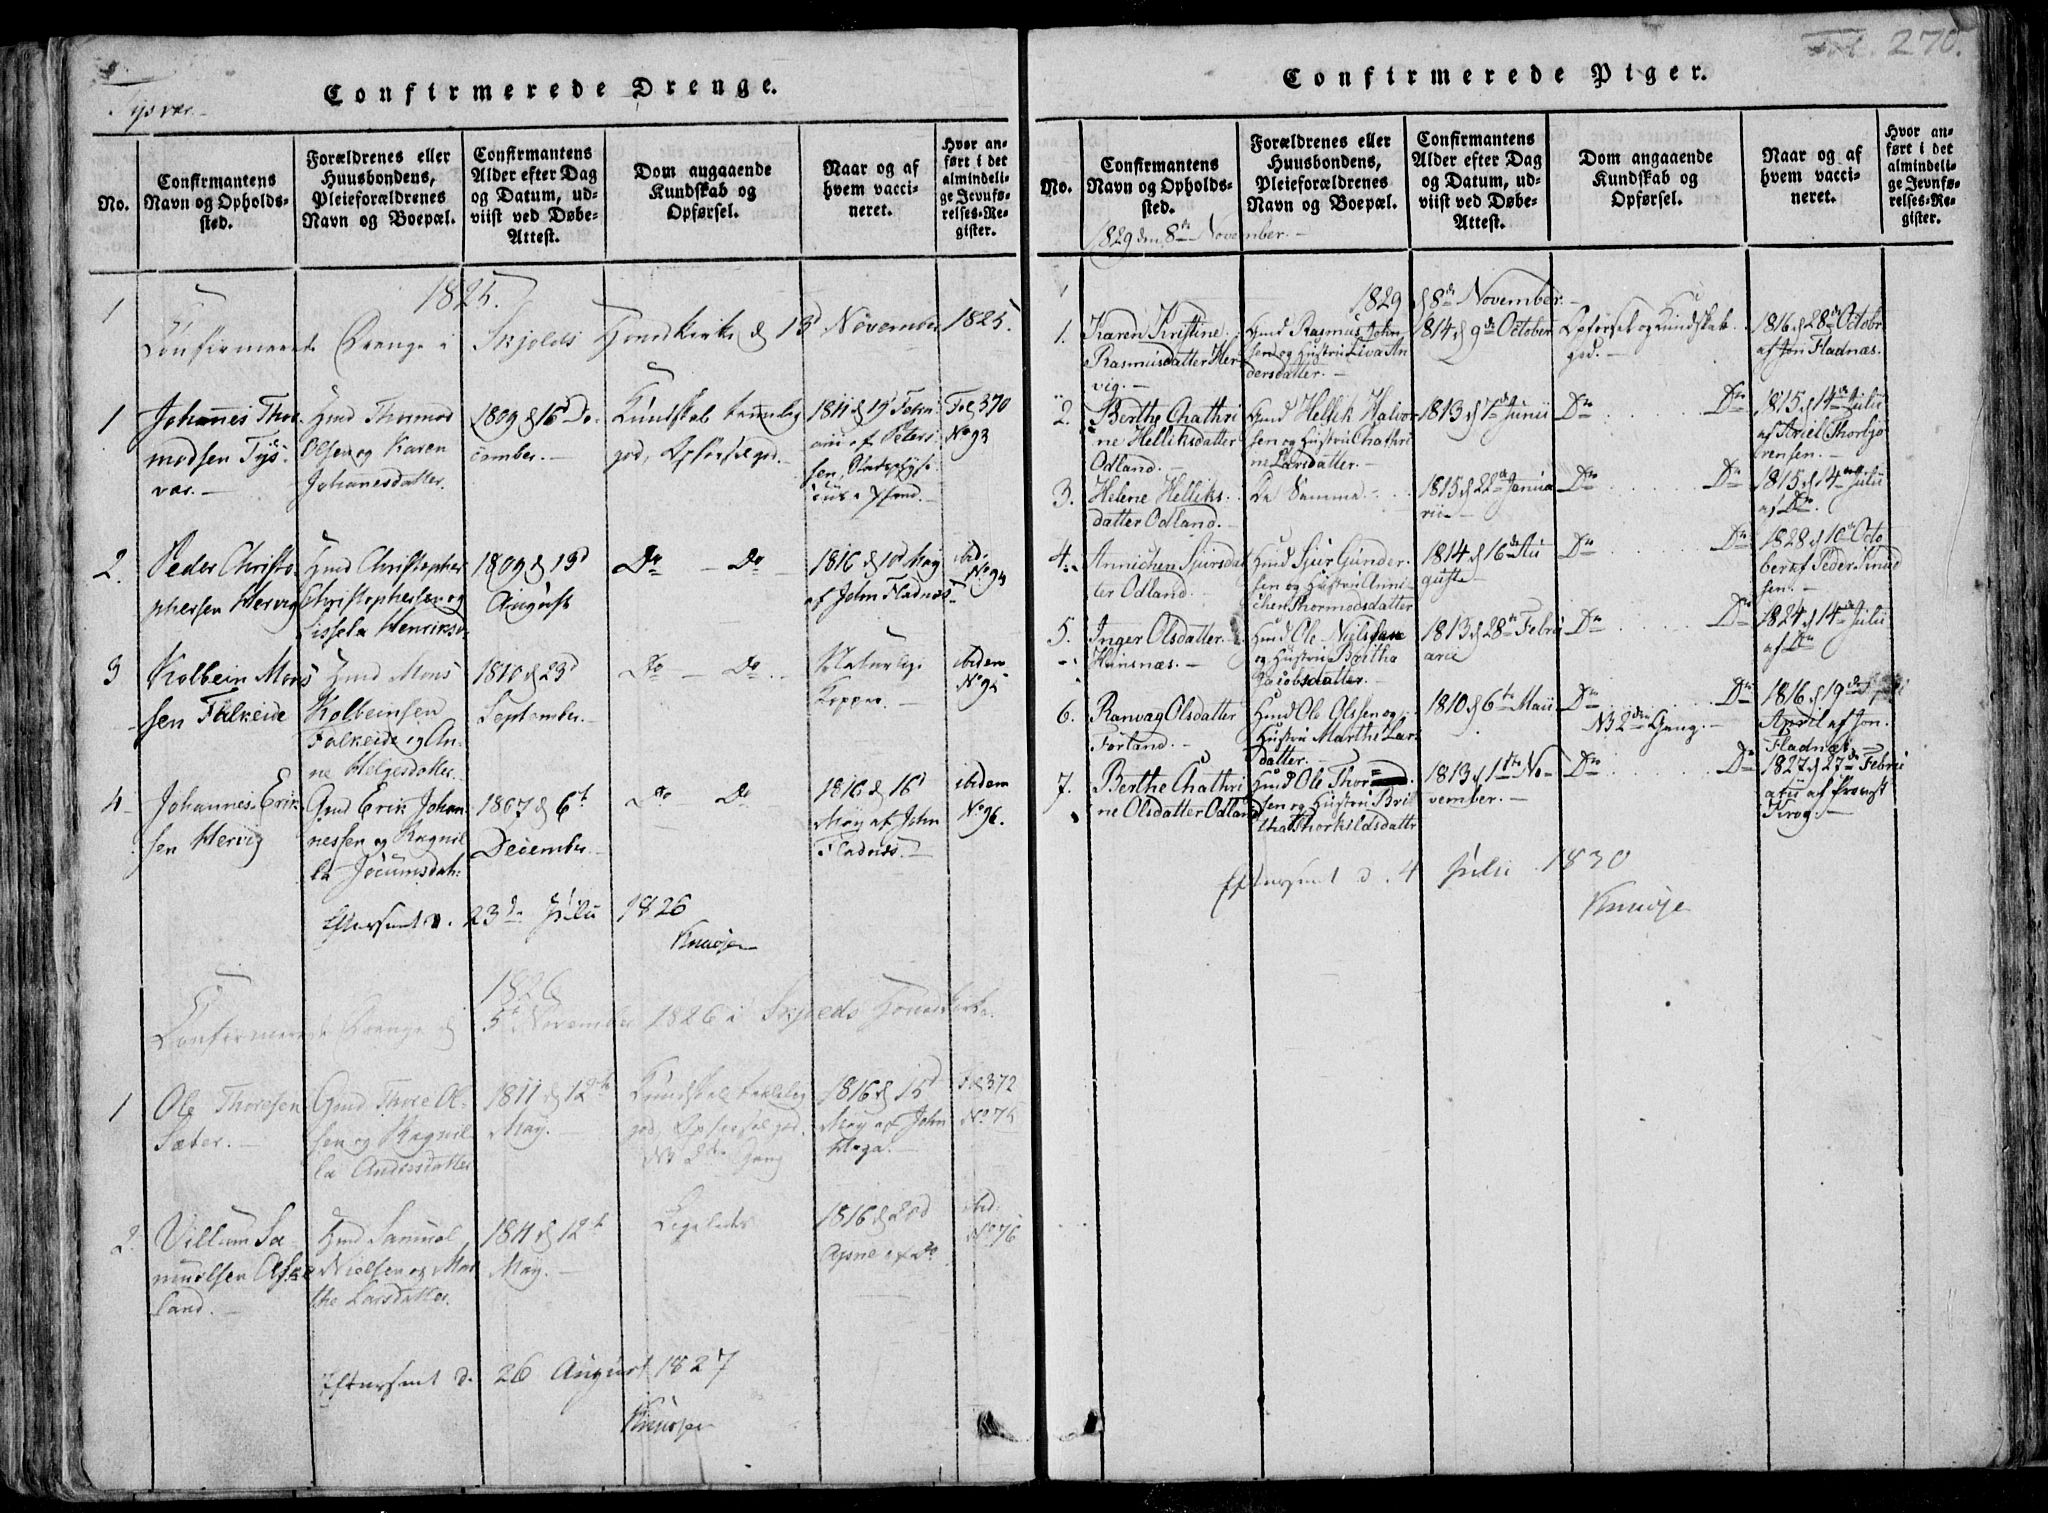 Tysvær
Confirmerede Drenge.
No.
Confirmantens
Navn og Opholds-
sted.
Forældrenes eller
Huusbondens,
Pleieforældrenes
Navn og Boepæl.
Confirmantens
Alder efter Dag
og Datum, ud-
viist ved Døbe-
Attest.
Dom angaaende
Kundskab og
Opførsel.
Naar og af
hvem vacci-
neret.
Hvor an-
ført i det
almindeli-
ge Jevnfø-
relses-Re-
gister.
1825.
Confirmerede Drenge i Skjolds Hovedkirke d 13d November 1825.
1
Johannes Thor-
modsen Tys-
vær.
Gmd Thormod
Olsen og Karen
Johanesdatter.
1809 d 16d De-
cember.
Kundskab temelig
god, Opførsel god.
Fol 370
No 93
2.
Peder Christo
phersen Hervig
Gmd Christopher
Christophersen og
Henriksd.
1809 d 13d
August
Do - Do -
1816 d 10d May
af John Fladnæs
ibid.
No 94
3
Kolbein Mons
sen Falkeide
Gmd Mons
Kolbeinsen
Falkeide og An-
ne Helgesdatter.
1810 d 23d
September.
Do - Do
Naturlige
Kopper.
ibidem
No 95
4
Johannes Erik
sen Hervig
Gmd Erik Johan
nessen og Ragnil
la Jocumsdatt:
1807 d 6t
December.
Do Do
1816 d 16d
May af John
Fladnæs.
ibidem
No 96.
Efterseet d. 23de Julii 1826
1826
Confirmerede Drenge d 5t November 1826 i Skjolds Hovedkirke.
1
Ole Thoresen
Sæter.
Gmd Thore Ol-
sen og Ragnil
la Andersdatter
1811 d 12te
May.
Kundskab
god, Opførsel god.
NB 2den Gang
1816 d 15d
May af John
Fol 372
No 75
2.
Villum Sa
muelsen
land.
Gmd Samuel
Nielsen og Mar
the Larsdatter.
1811 d 12te
May.
Ligeledes
1816 d 20d
ibid.
No 76
Efterseet d. 26 August 1827
Fol. 270.
Confirmerede Piger.
No.
Confirmantens
Navn og Opholds-
sted.
Forældrenes eller
Huusbondens,
Pleieforældrenes
Navn og Boepæl.
Confirmantens
Alder efter Dag
og Datum, ud-
viist ved Døbe-
Attest.
Dom angaaende
Kundskab og
Opførsel.
Naar og af
hvem vacci-
neret.
Hvor an-
ført i det
almindeli-
ge Jevnfø-
relses-Re-
gister.
1829 den 8de November.
1829 d 8de November.
1.
Karen Kristine
Rasmusdatter Her
vig.
Gmd Rasmus John
sen og Hustru Liva An
dersdatter.
1814 d 9de October
Opførsel og Kundskab
god.
1816 d 28de Octobr
af Jon Fladnæs.
2.
Berthe Chathri
ne Helliksdatter
Odland.
Gmd Hellik Halvor
sen og Hustru Chathri
ne Larsdatter.
1813 d 7de Junii
Do Do
1815 d 14de Julii
af Ariel Thorbjø
rensen.
3.
Helene Helliks
datter Odland.
De Samme
1815 d 22de Janua
rii
Do Do
1815 d 14de Julii
af Do.
4.
Annichen Sjursdat
ter Odland.
Gmd Sjur Gunder
sen og Hustru Anni
chen Thormodsdatter
1814 d 16de Au
guste
Do Do
1828 d 10de Octo
ber af Peder Knud
sen.
5.
Inger Olsdatter
Hinsnæs.
Gmd Ole Nielsen
og Hustru Bertha
Jacobsdatter.
1813 d 28de Febru
arii
Do Do
1824 d 14de Julii
af Do
6.
Ranvag Olsdatter
Førland.
Gmd Ole Olssen og
Hustru Marthe Lar
sdatter.
1810 d 6te Maii
Do Do
NB 2den Gang.
1816 d 19de
April af Jon
Fladnæs.
7.
Berthe Chathri
ne Olsdatter Odland
Gmd Ole Thor
sen og Hustru Bri
tha Thorkildsdattr
1813 d 1ste No-
vember.
Do Do
1827 d 27de Febru
arii af Provst
Krog.
Efterseet d. 4 Julii 1830